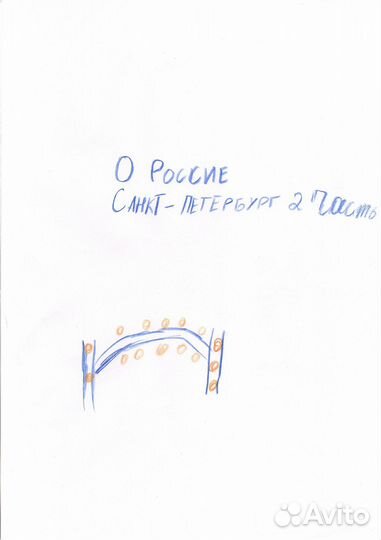 О РОССИЕ
САНКТ-ПЕТЕРБУРГ 2 Часть
Avito